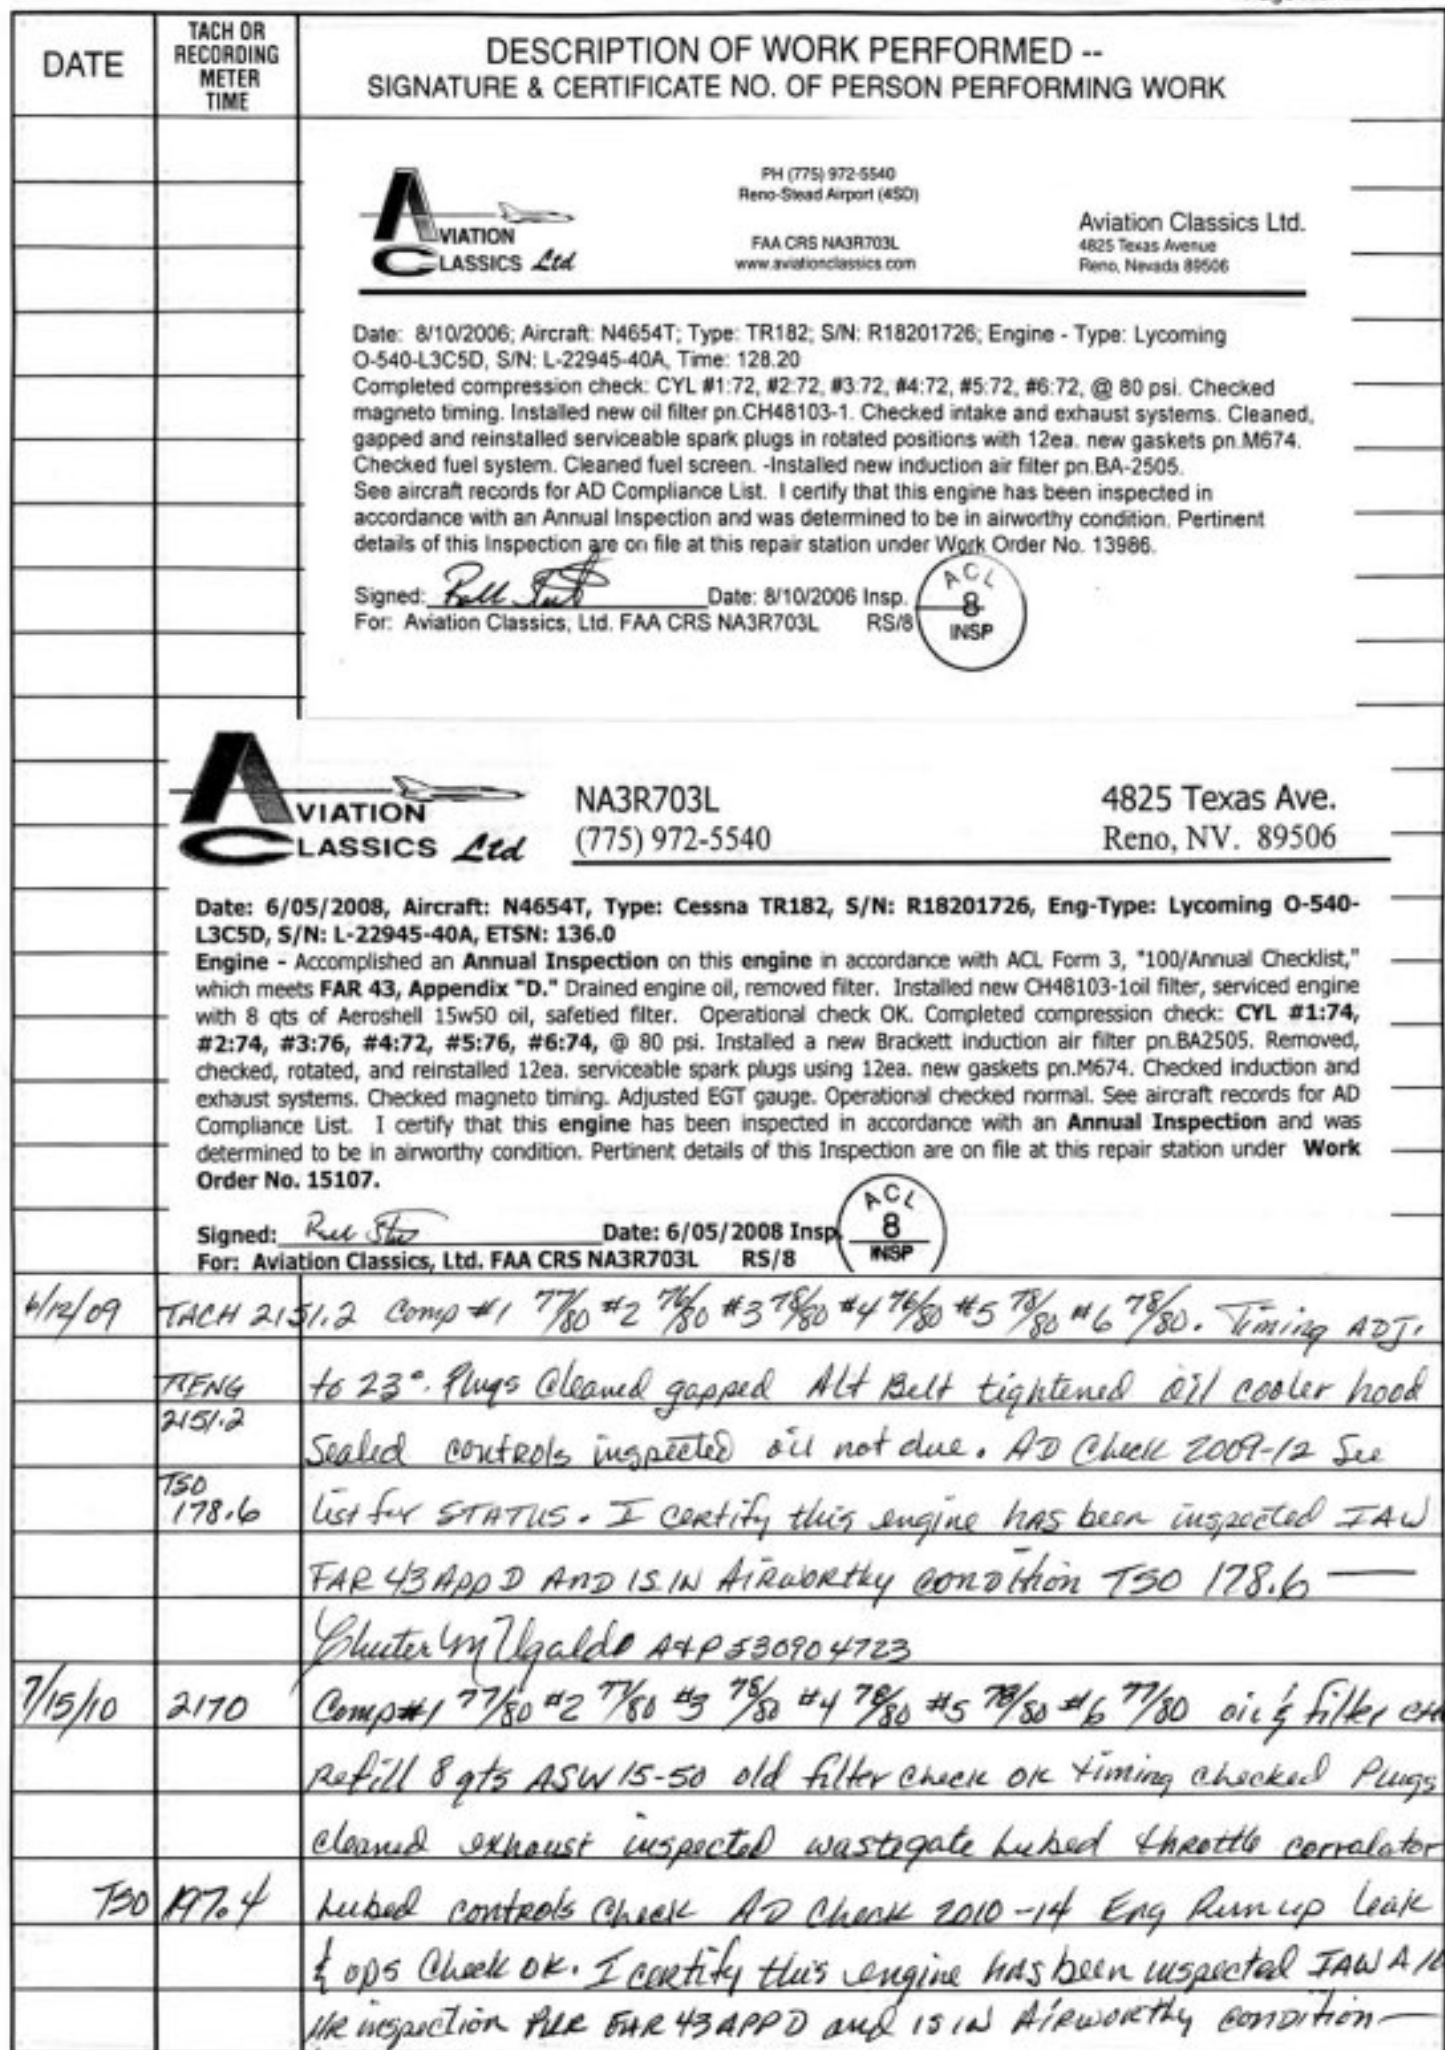 DATE
TACH OR
RECORDING
METER
TIME
DESCRIPTION OF WORK PERFORMED --
SIGNATURE & CERTIFICATE NO. OF PERSON PERFORMING WORK
AVIATION
CLASSICS Ltd
PH (775) 972-5540
Reno-Stead Airport (4SD)
FAA CRS NA3R703L
www.aviationclassics.com
Aviation Classics Ltd.
4825 Texas Avenue
Reno, Nevada 89506
Date: 8/10/2006; Aircraft: N4654T; Type: TR182; S/N: R18201726; Engine - Type: Lycoming
O-540-L3C5D, S/N: L-22945-40A, Time: 128.20
Completed compression check: CYL #1:72, #2:72, #3:72, #4:72, #5:72, #6:72, @ 80 psi. Checked
magneto timing. Installed new oil filter pn.CH48103-1. Checked intake and exhaust systems. Cleaned,
gapped and reinstalled serviceable spark plugs in rotated positions with 12ea. new gaskets pn.M674.
Checked fuel system. Cleaned fuel screen. -Installed new induction air filter pn.BA-2505.
See aircraft records for AD Compliance List. I certify that this engine has been inspected in
accordance with an Annual Inspection and was determined to be in airworthy condition. Pertinent
details of this Inspection are on file at this repair station under Work Order No. 13986.
Signed: Date: 8/10/2006 Insp.
For: Aviation Classics, Ltd. FAA CRS NA3R703L RS/8
ACL
8
INSP
AVIATION
CLASSICS Ltd
NA3R703L
(775) 972-5540
4825 Texas Ave.
Reno, NV. 89506
Date: 6/05/2008, Aircraft: N4654T, Type: Cessna TR182, S/N: R18201726, Eng-Type: Lycoming O-540-
L3C5D, S/N: L-22945-40A, ETSN: 136.0
Engine - Accomplished an Annual Inspection on this engine in accordance with ACL Form 3, "100/Annual Checklist,"
which meets FAR 43, Appendix "D." Drained engine oil, removed filter. Installed new CH48103-1oil filter, serviced engine
with 8 qts of Aeroshell 15w50 oil, safetied filter. Operational check OK. Completed compression check: CYL #1:74,
#2:74, #3:76, #4:72, #5:76, #6:74, @ 80 psi. Installed a new Brackett induction air filter pn.BA2505. Removed,
checked, rotated, and reinstalled 12ea. serviceable spark plugs using 12ea. new gaskets pn.M674. Checked induction and
exhaust systems. Checked magneto timing. Adjusted EGT gauge. Operational checked normal. See aircraft records for AD
Compliance List. I certify that this engine has been inspected in accordance with an Annual Inspection and was
determined to be in airworthy condition. Pertinent details of this Inspection are on file at this repair station under Work
Order No. 15107.
Signed: Date: 6/05/2008 Insp.
For: Aviation Classics, Ltd. FAA CRS NA3R703L RS/8
ACL
8
INSP
6/12/09 TACH 2151.2 Comp #1 77/80 #2 76/80 #3 78/80 #4 76/80 #5 78/80 #6 78/80. Timing ADJ.
TTENG to 23°. Plugs Cleaned gapped Alt Belt tightened oil cooler hood
2151.2
Sealed controls inspected oil not due. AD Check 2009-12 See
TSO
178.6 list for STATUS. I certify this engine has been inspected IAW
FAR 43 App D AND IS IN AIRWORTHY condition TSO 178.6
A&P 530904723
7/15/10 2170 Comp #1 77/80 #2 77/80 #3 78/80 #4 78/80 #5 78/80 #6 77/80 oil & filter
Refill 8 qts ASW 15-50 old filter check OK timing checked Plugs
cleaned exhaust inspected wastegate Lubed throttle corralator
TSO 197.4 Lubed controls Check AD Check 2010-14 Eng Run up Leak
& ops Check OK. I certify this engine has been inspected IAW A
HR inspection PER FAR 43 APP D and IS IN AIRWORTHY condition